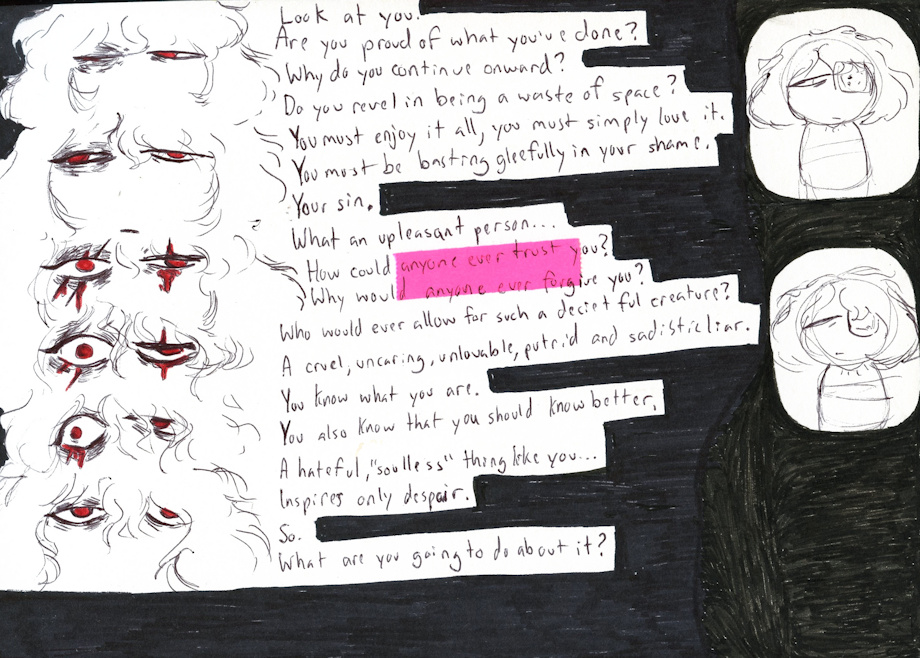 Look at you.
Are you proud of what you've done?
Why do you continue onward?
Do you revel in being a waste of space?
You must enjoy it all, you must simply love it.
You must be basting gleefully in your shame.
Your sin.
What an upleasant person...
How could anyone ever trust you?
Why would anyone ever forgive you?
Who would ever allow for such a decietful creature?
A cruel, uncaring, unlovable, putrid and sadistic liar.
You know what you are.
You also know that you should know better.
A hateful, "soulless" thing like you...
Inspires only despair.
So.
What are you going to do about it?